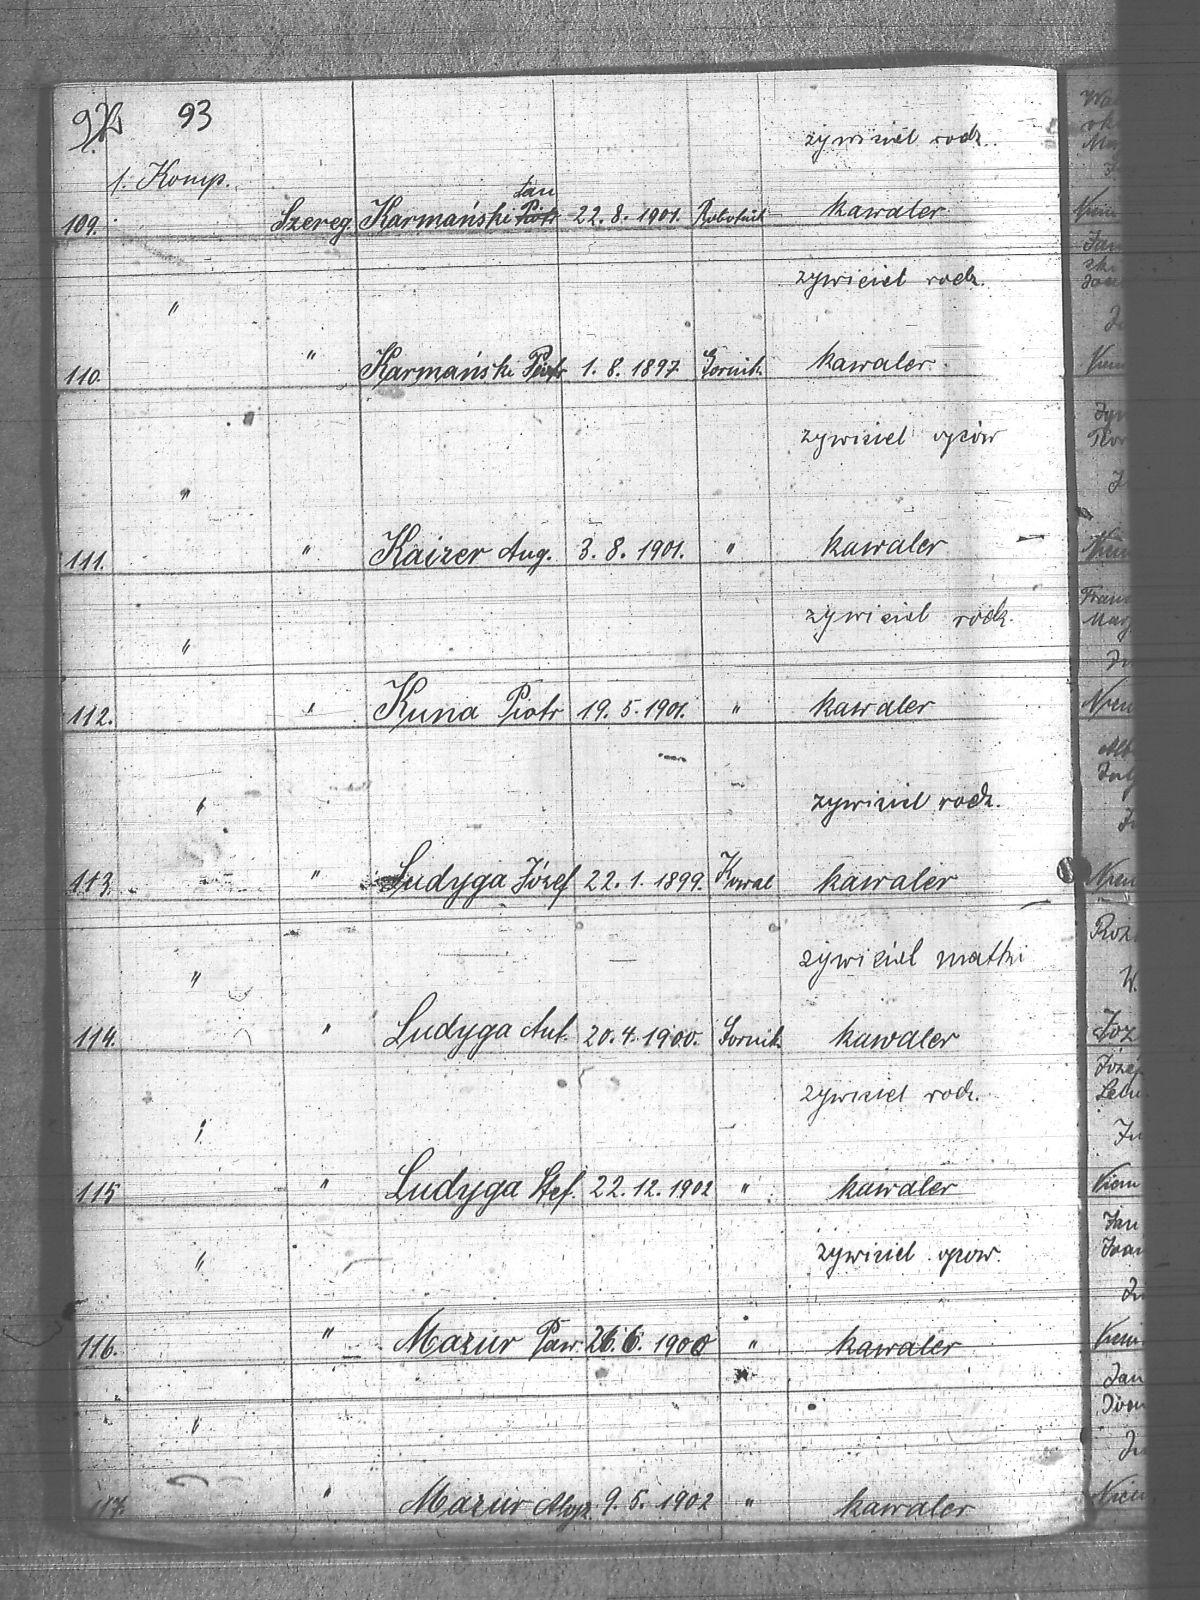 93
żywiciel rodz.
1. Komp.
Jan
109. Szereg. Karmański Piotr 22.8.1901. Robotnik kawaler
żywiciel rodz.
"
110. " Karmański Piotr 1.8.1897. Gornik kawaler.
żywiciel ojców
"
111. " Kaizer Aug. 3.8.1901. " kawaler
żywiciel rodz.
"
112. " Kuna Piotr 19.5.1901. " kawaler
żywiciel rodz.
"
113. " Ludyga Józef 22.1.1899. Kowal kawaler
żywiciel matki
"
114. " Ludyga Ant. 20.4.1900. Gornik kawaler
żywiciel rodz.
"
115 " Ludyga Stef. 22.12.1902 " kawaler
żywiciel ojcow.
"
116. " Mazur Paw. 26.6.1900 " kawaler
"
117. " Mazur Alojz. 9.5.1902 " kawaler